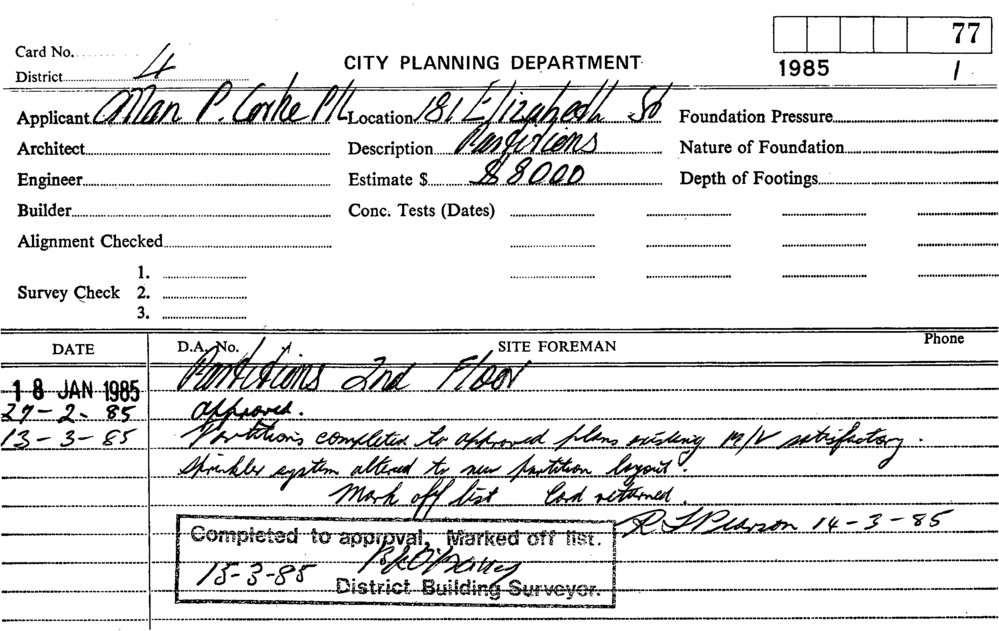 77
Card No.
District 4
CITY PLANNING DEPARTMENT
1985 1
Applicant Allan P. P/L Location 181 Elizabeth St Foundation Pressure
Architect Description Partitions Nature of Foundation
Engineer Estimate $ $ 8000 Depth of Footings
Builder Conc. Tests (Dates)
Alignment Checked
1.
Survey Check 2.
3.
DATE D.A. No. SITE FOREMAN Phone
18 JAN 1985 Partitions 2nd Floor
27-2-85 Approved.
13-3-85 Partitions completed to approved plans existing M/V satisfactory.
Sprinkler system altered to new partition layout.
Mark off list Card returned.
R Pearson 14-3-85
Completed to approval. Marked off list.
15-3-85
District Building Surveyor.